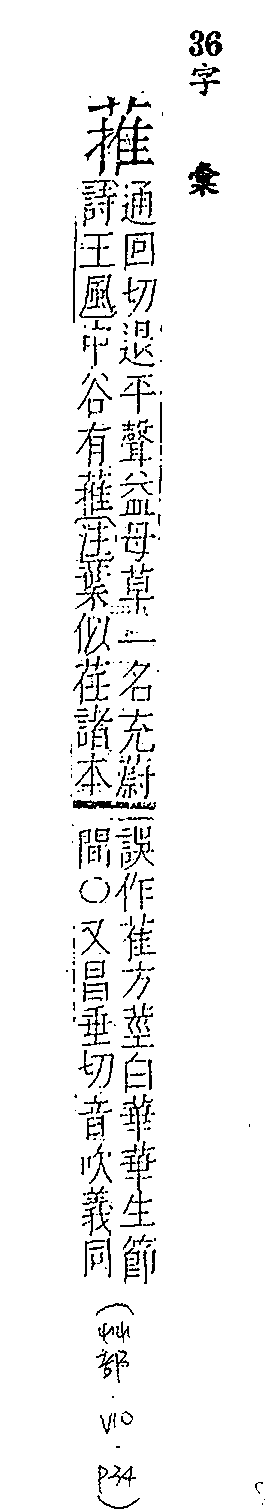 36字彙
蓷
通回切退平聲益母草一名充蔚
詩王風中谷有蓷注葉似荏諸本
誤作萑方莖白華華生節
間○又昌垂切音吹義同
(艸部·V10·P34)